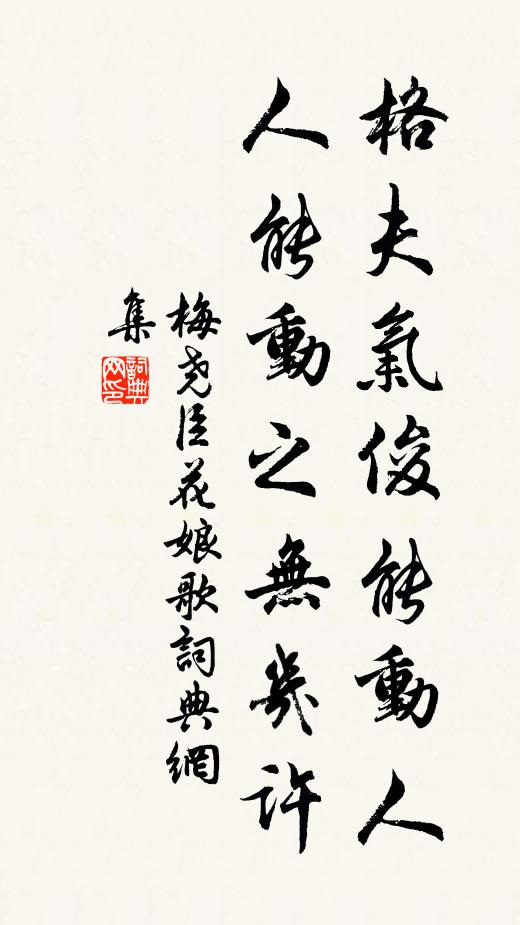 格夫氣俊能動人
人能動之無幾許
梅尧臣花娘歌詞典網
集
詞典网印